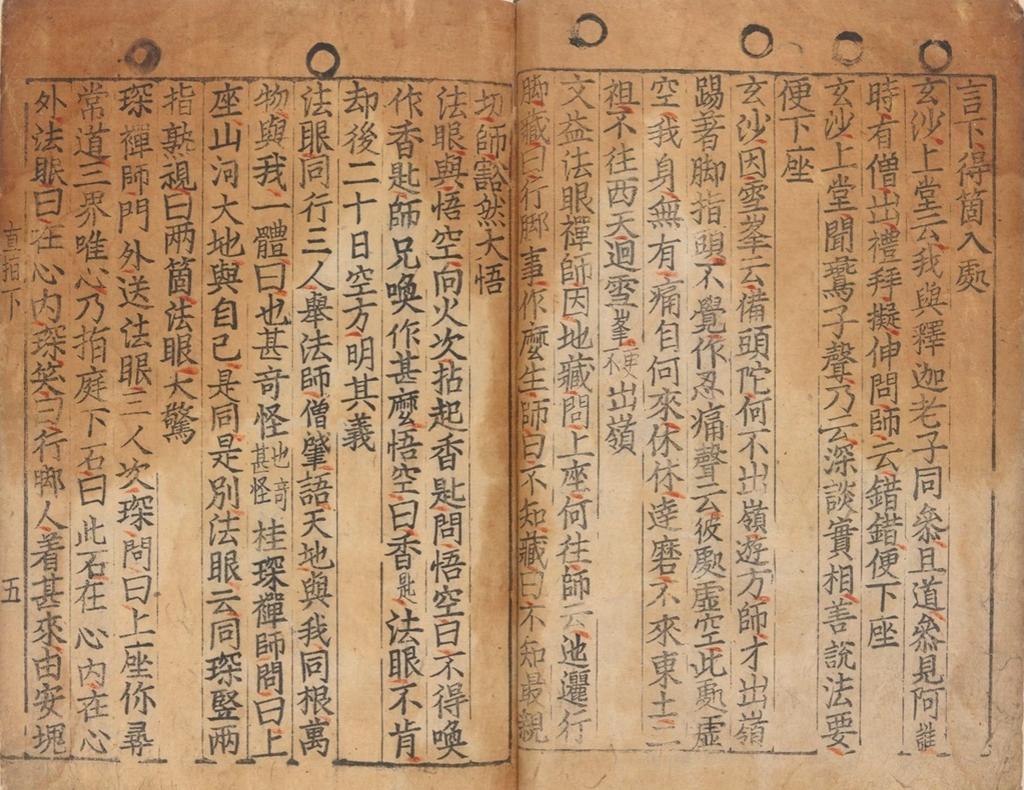 言下得箇入處
玄沙上堂云我與釋迦老子同叅且道叅見阿誰
時有僧出禮拜擬伸問師云錯錯便下座
玄沙上堂聞鷰子聲乃云深談實相善說法要
便下座
玄沙因雪峯云備頭陀何不出嶺遊方師才出嶺
踢著脚指頭不覺作忍痛聲云彼處虛空此處虛
空我身無有痛自何來休休達磨不來東土二
祖不往西天迴雪峯更不出嶺
文益法眼禪師因地藏問上座何往師云迆邐行
脚藏曰行脚事作麽生師曰不知藏曰不知最親
切師豁然大悟
法眼與悟空向火次拈起香匙問悟空曰不得喚
作香匙師兄喚作甚麽悟空曰香匙法眼不肯
却後二十日空方明其義
法眼同行三人舉法師僧肇語天地與我同根萬
物與我一體曰也甚奇怪也奇甚怪桂琛禪師問曰上
座山河大地與自己是同是別法眼云同琛竪兩
指熟視曰兩箇法眼大驚
琛禪師門外送法眼三人次琛問曰上座你尋
常道三界唯心乃指庭下石曰此石在心內在心
外法眼曰在心內琛笑曰行脚人着甚來由安塊
直指下 五